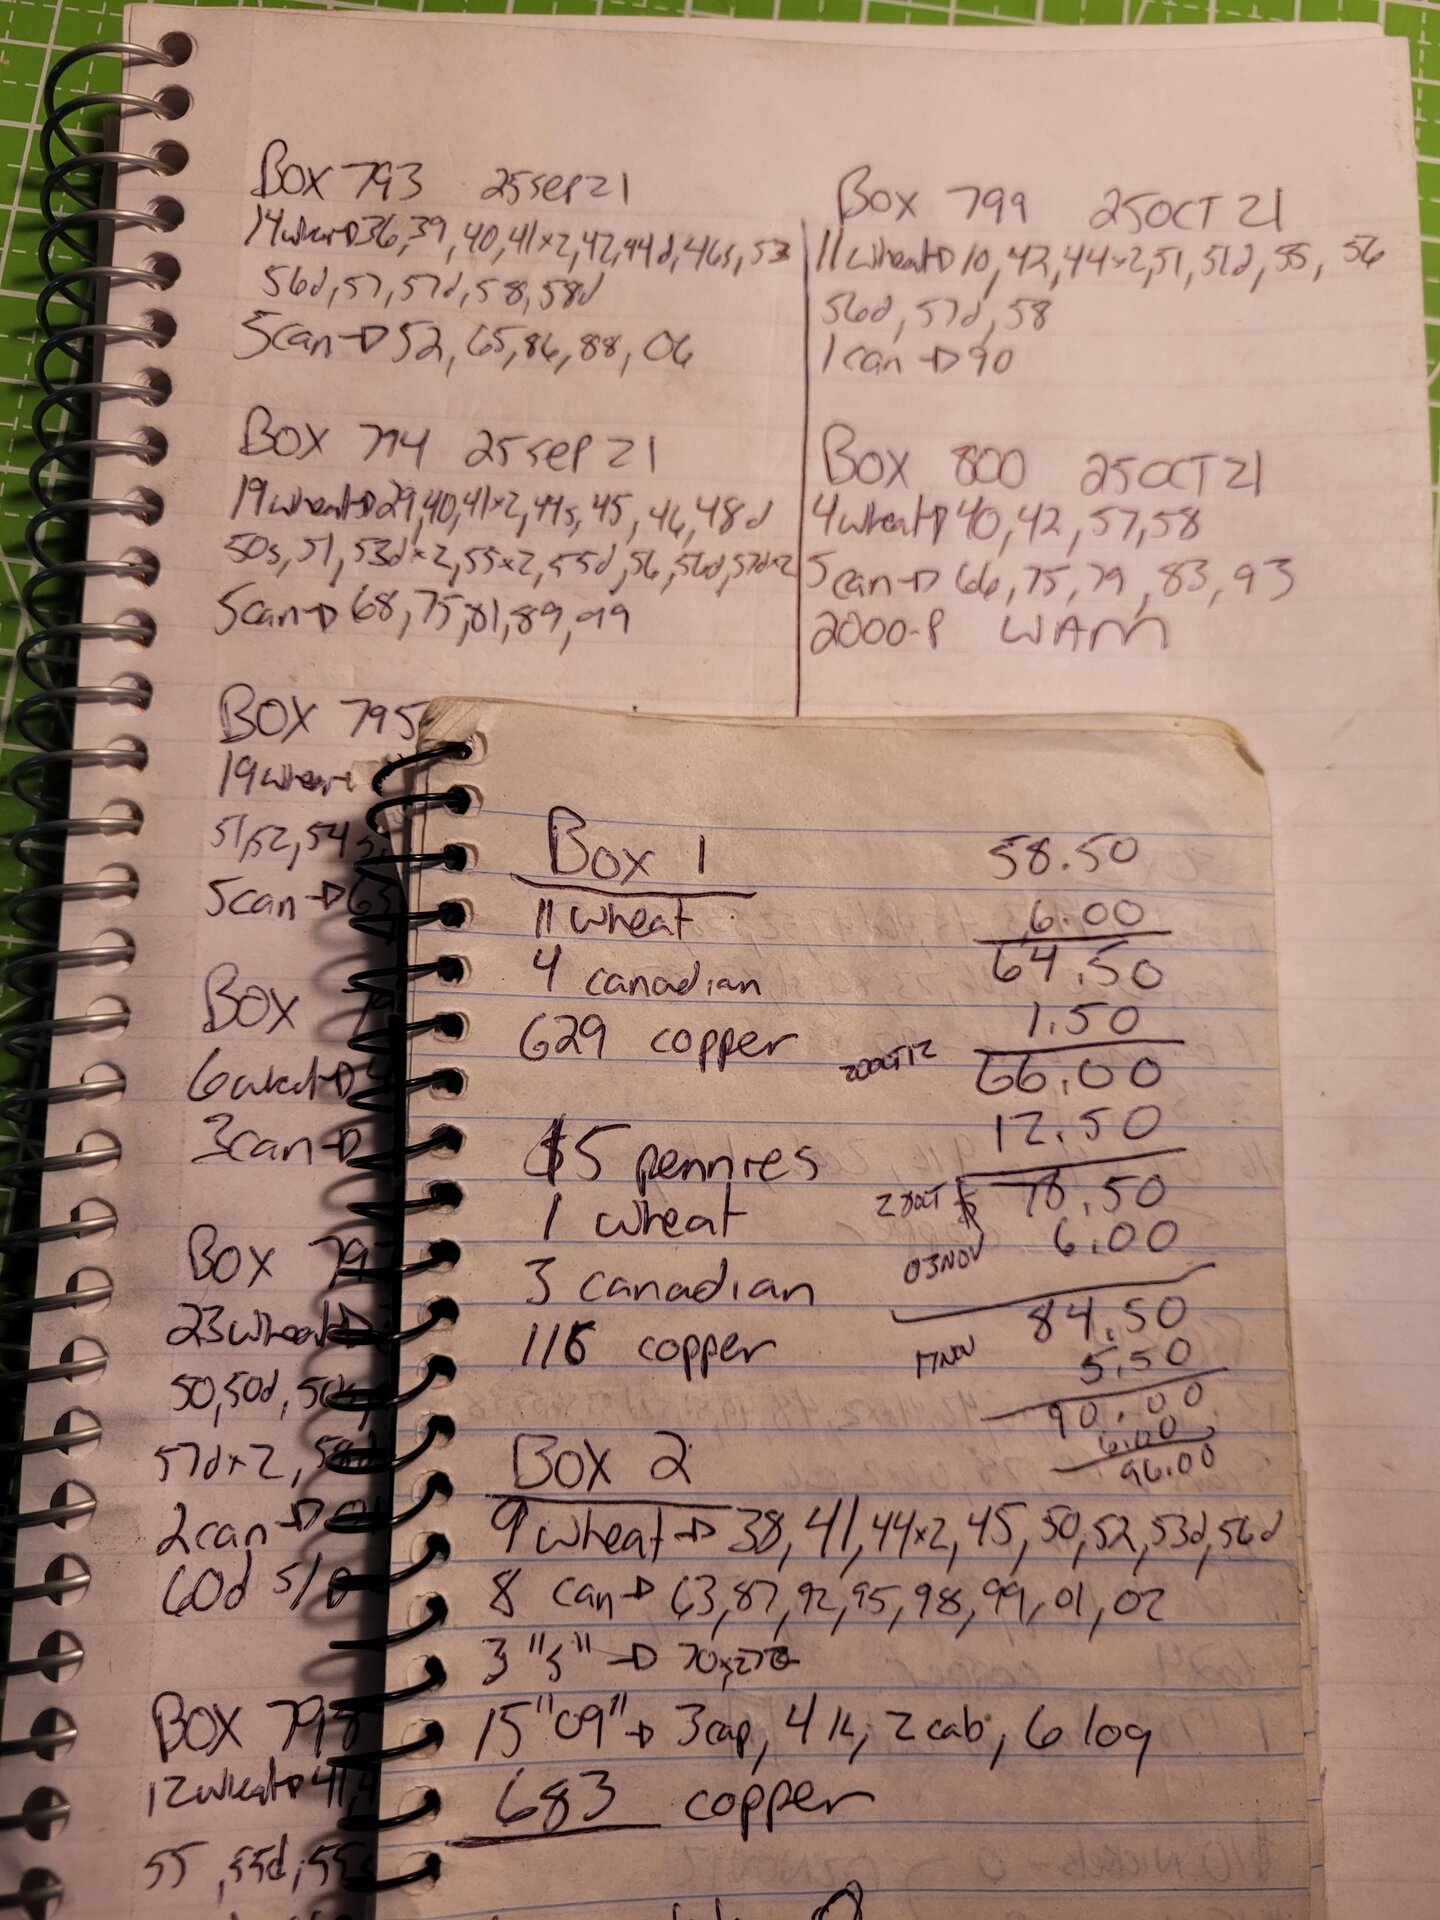 Box 793 25sep21
14wheat→36,39,40,41×2,42,44d,46s,53
56d,57,57d,58,58d
5can→52,65,86,88,06
Box 794 25sep21
19wheat→29,40,41×2,44s,45,46,48d
50s,51,53d×2,55×2,55d,56,56d,57d×2
5can→68,75,81,89,99
Box 795
19wheat
51,52,54s,
5can→63
Box 7
6wheat→
3can→
Box 79
23wheat→
50,50d,50s,
57d×2,58d
2can→
60d s/D
Box 798
12wheat→41,4
55,55d,55s
Box 799 25OCT21
11wheat→10,42,44×2,51,51d,55,56
56d,57d,58
1can→90
Box 800 25OCT21
4wheat→40,42,57,58
5can→66,75,79,83,93
2000-P WAM
Box 1
11 wheat
4 canadian
629 copper
$5 pennies
1 wheat
3 canadian
116 copper
58.50
6.00
64.50
1.50
20OCT12 66.00
12.50
28OCT $ 78.50
03NOV 6.00
84.50
17NOV 5.50
90.00
6.00
96.00
Box 2
9 wheat→38,41,44×2,45,50,52,53d,56d
8 can→63,87,92,95,98,99,01,02
3 "s"→
15 "09"→3cap, 4 lk, 2 cab, 6 log
683 copper